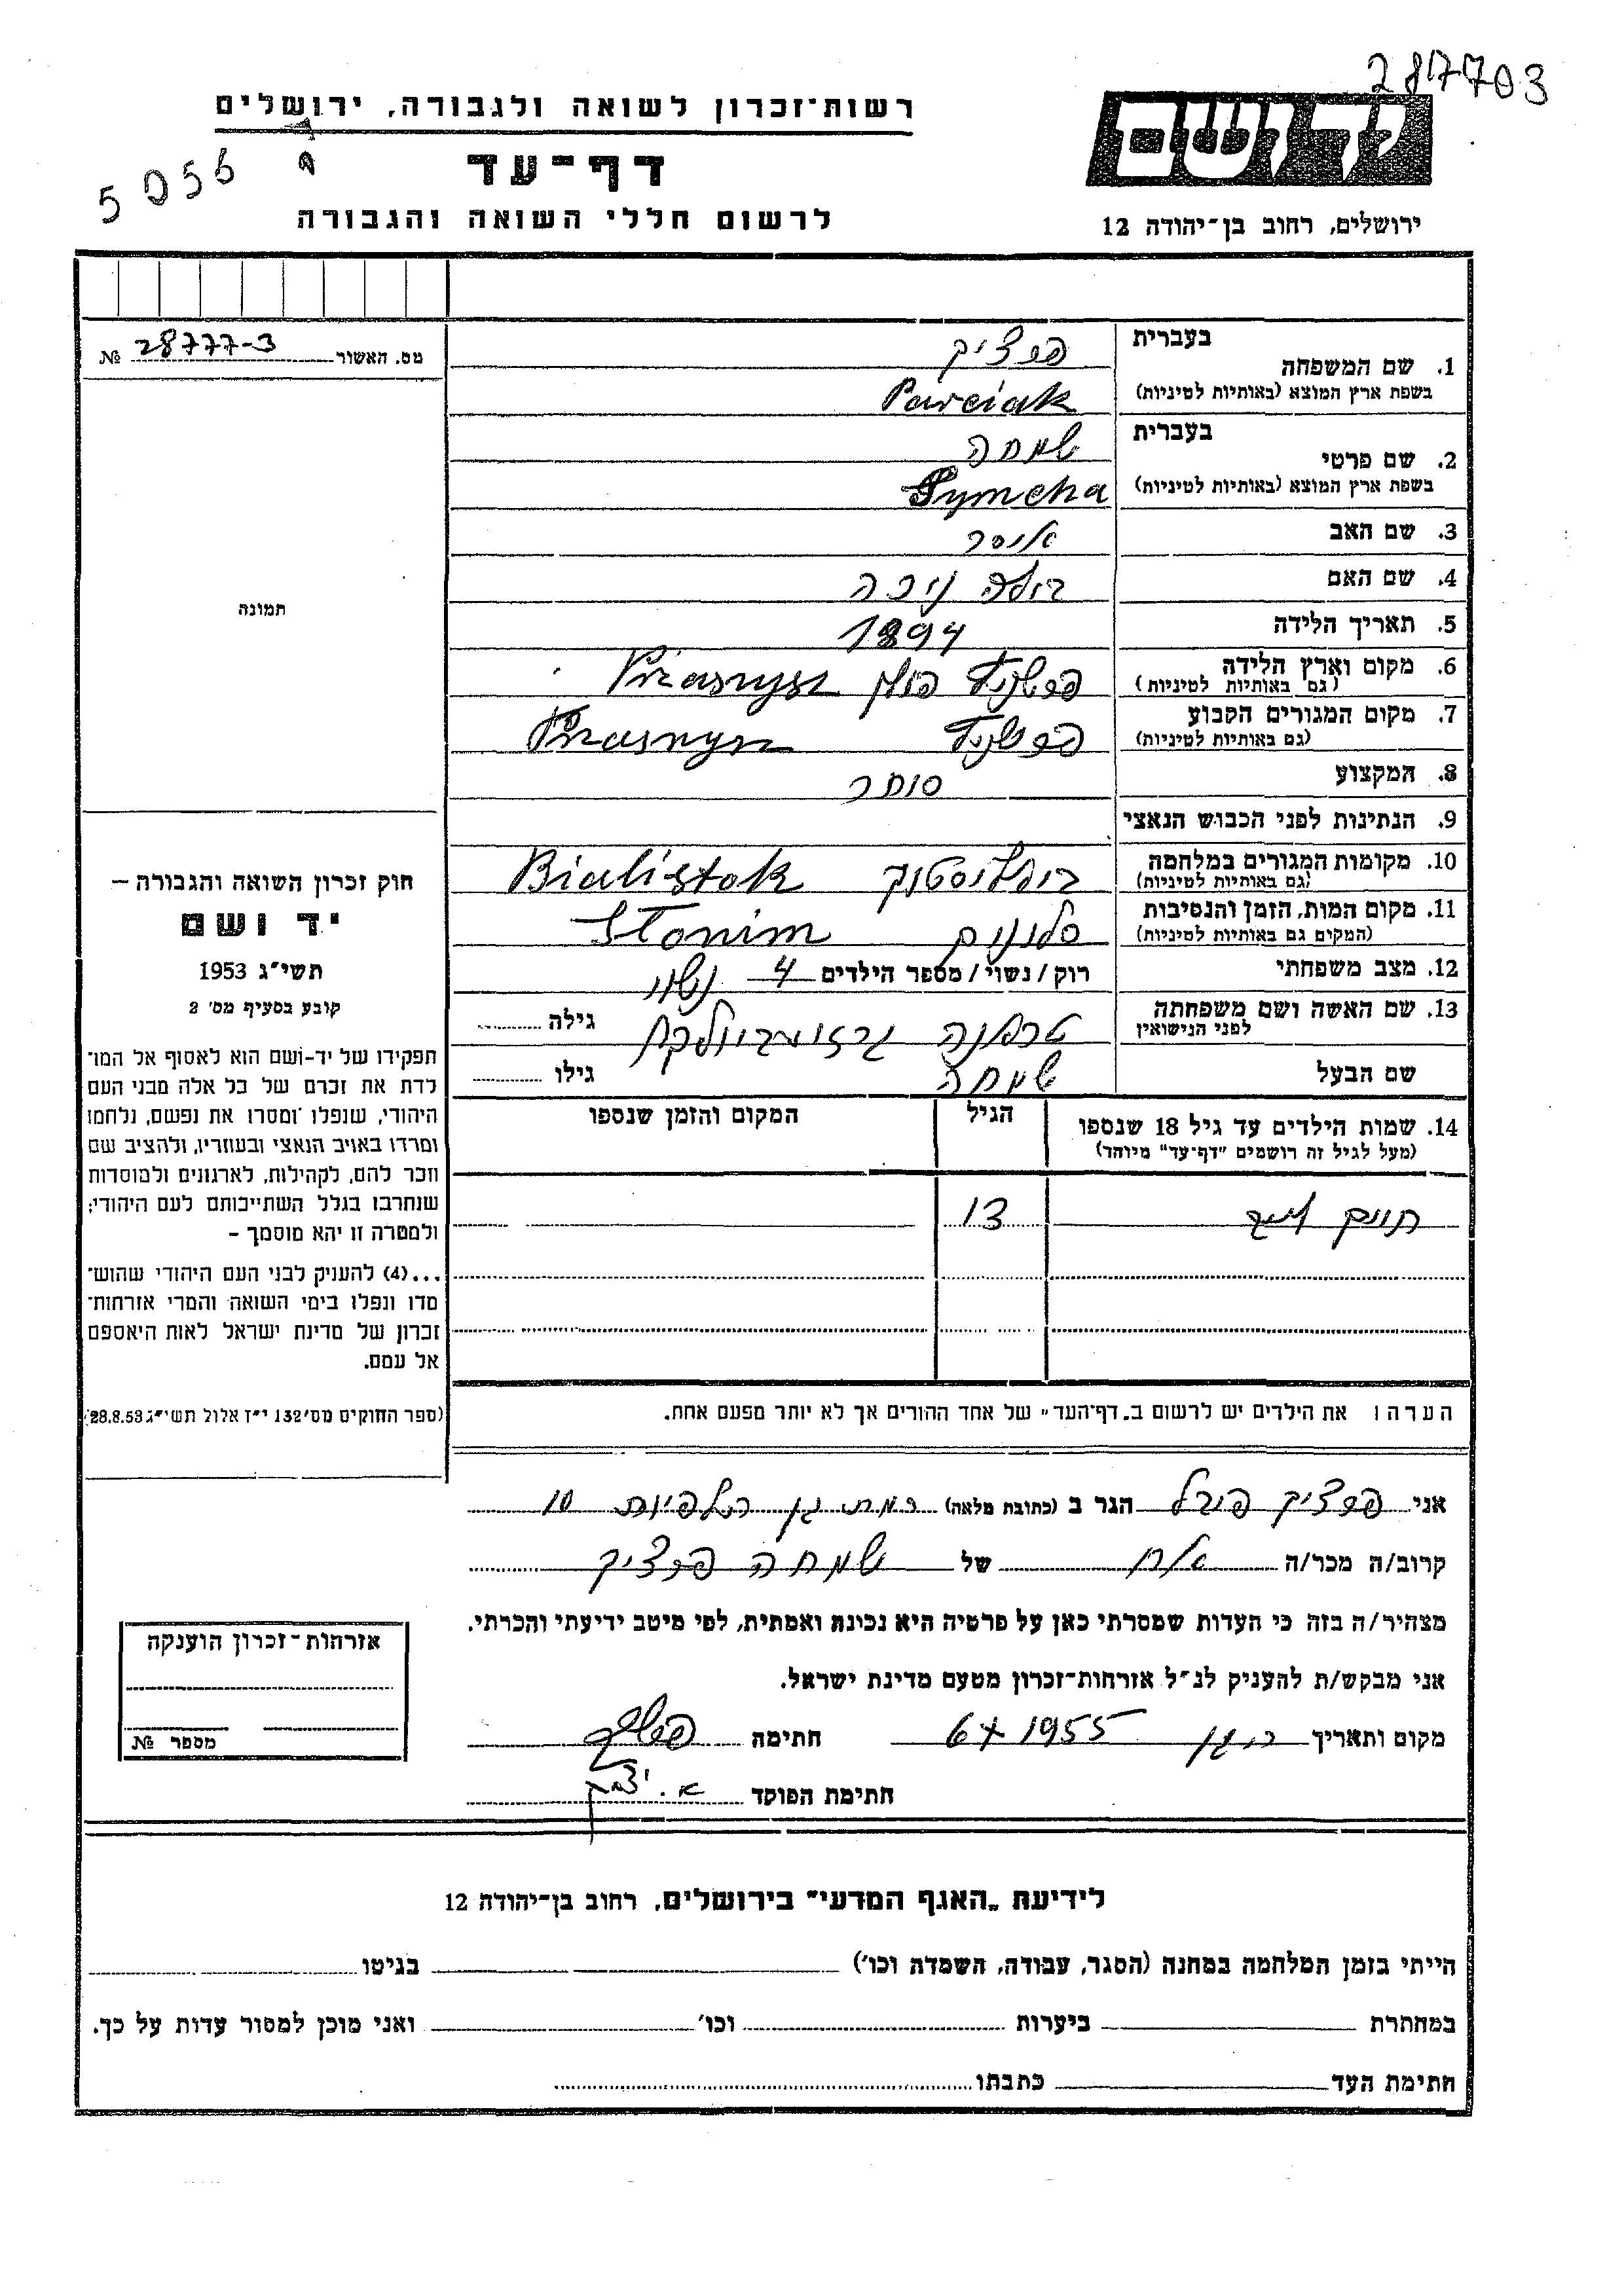 287703
רשות־זכרון לשואה ולגבורה, ירושלים
יד ושם
5056
דף־עד
ירושלים, רחוב בן־יהודה 12
לרשום חללי השואה והגבורה
מס. האשור 28777-3 №
תמונה
חוק זכרון השואה והגבורה –
יד ושם
תשי״ג 1953
קובע בסעיף מס׳ 2
תפקידו של יד-ושם הוא לאסוף אל המו־
לדת את זכרם של כל אלה מבני העם
היהודי, שנפלו ומסרו את נפשם, נלחמו
ומרדו באויב הנאצי ובעוזריו, ולהציב שם
וזכר להם, לקהילות, לארגונים ולמוסדות
שנחרבו בגלל השתייכותם לעם היהודי;
ולמטרה זו יהא מוסמך –
...(4) להעניק לבני העם היהודי שהוש־
מדו ונפלו בימי השואה והמרי אזרחות־
זכרון של מדינת ישראל לאות היאספם
אל עמם.
(ספר החוקים מס׳ 132 י״ז אלול תשי״ג 28.8.53)
1. שם המשפחה בעברית פרציק
בשפת ארץ המוצא (באותיות לטיניות) Parciak
2. שם פרטי בעברית שמחה
בשפת ארץ המוצא (באותיות לטיניות) Symcha
3. שם האב איסר
4. שם האם
5. תאריך הלידה 1894
6. מקום וארץ הלידה (גם באותיות לטיניות) פרשניץ פולין Przasnysz
7. מקום המגורים הקבוע (גם באותיות לטיניות) פרשניץ Przasnysz
8. המקצוע סוחר
9. הנתינות לפני הכבוש הנאצי
10. מקומות המגורים במלחמה (גם באותיות לטיניות) ביאליסטוק Bialistok
11. מקום המות, הזמן והנסיבות (המקום גם באותיות לטיניות) סלונים Slonim
12. מצב משפחתי רוק/נשוי/מספר הילדים 4 נשוי
13. שם האשה ושם משפחתה לפני הנישואין גילה
שם הבעל שמחה גילו
14. שמות הילדים עד גיל 18 שנספו הגיל המקום והזמן שנספו
(מעל לגיל זה רושמים "דף־עד" מיוחד)
13
הערה: את הילדים יש לרשום ב„דף־העד״ של אחד ההורים אך לא יותר מפעם אחת.
אני פרציק הגר ב (כתובת מלאה) רמת גן 10
קרוב/ה מכר/ה אח של שמחה פרציק
מצהיר/ה בזה כי העדות שמסרתי כאן על פרטיה היא נכונה ואמתית, לפי מיטב ידיעתי והכרתי.
אני מבקש/ת להעניק לנ״ל אזרחות־זכרון מטעם מדינת ישראל.
מקום ותאריך ר. גן 6 X 1955 חתימה
חתימת הפוקד
אזרחות־זכרון הוענקה
מספר №
לידיעת „האגף המדעי״ בירושלים, רחוב בן־יהודה 12
הייתי בזמן המלחמה במחנה (הסגר, עבודה, השמדה וכו׳) בגיטו
במחתרת ביערות וכו׳ ואני מוכן למסור עדות על כך.
חתימת העד כתבתו